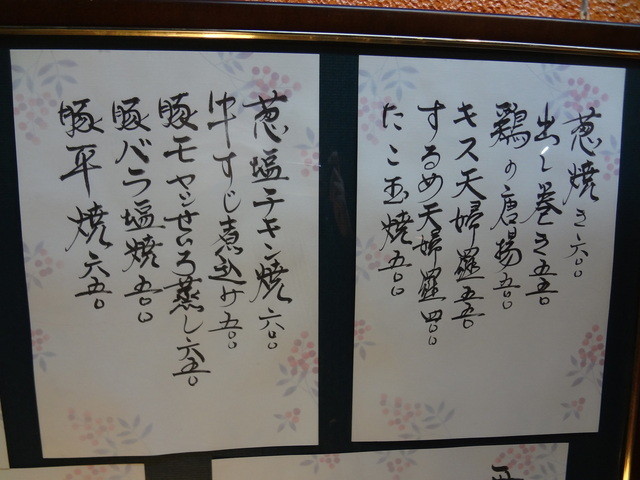 葱焼き 六〇〇
出し巻き 五五〇
鶏の唐揚 五〇〇
キス天婦羅 五五〇
するめ天婦羅 四〇〇
たこ玉焼 五〇〇
葱塩チキン焼 六〇〇
牛すじ煮込み 五〇〇
豚モヤシせいろ蒸し 六五〇
豚バラ塩焼 五〇〇
豚平焼 六五〇